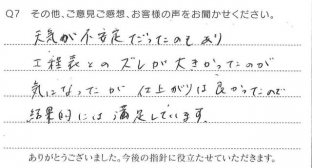 Q7 その他、ご意見ご感想、お客様の声をお聞かせください。
天気が不安定だったのもあり
工程表とのズレが大きかったのが
気になったが 仕上がりは良かったので
結果的には満足しています。
ありがとうございました。今後の指針に役立たせていただきます。